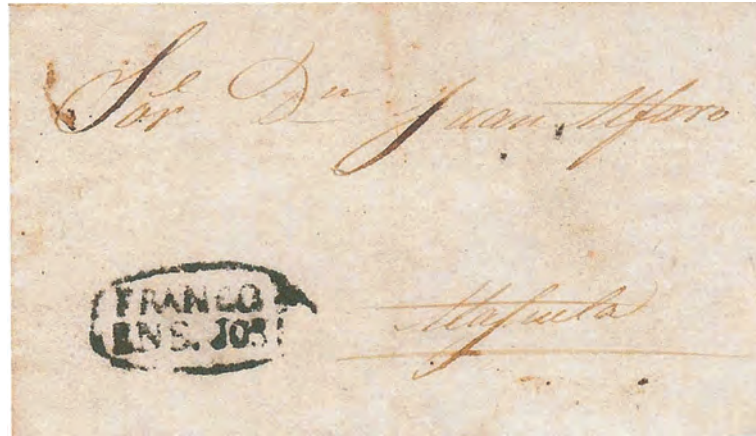 Sor Dn Juan Alfaro
FRANCO
EN S. JOSE
Alajuela